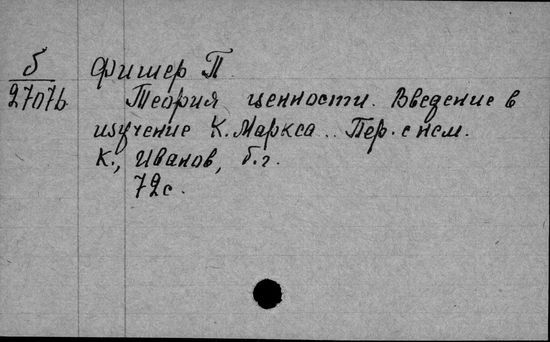 б
27076
Фишер П.
Теория ценности. Введение в
изучение К. Маркса.. Пер. с нем.
К., Иванов, б.г.
72с.